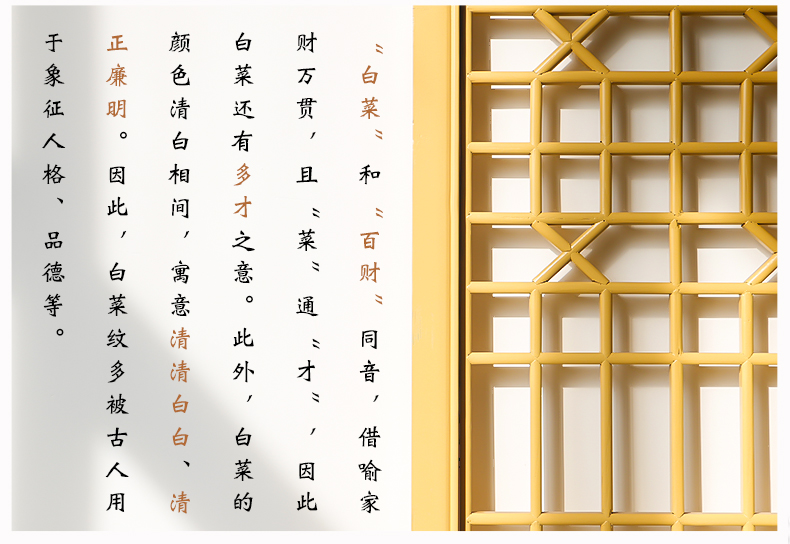 “白菜”和“百财”同音，借喻家
财万贯，且“菜”通“才”，因此
白菜还有多才之意。此外，白菜的
颜色清白相间，寓意清清白白、清
正廉明。因此，白菜纹多被古人用
于象征人格、品德等。